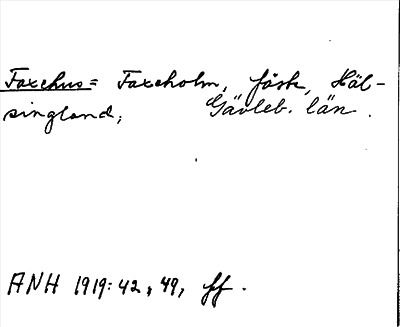 Faxehus = Faxeholm, fästn, Häl-
singland; Gävleb. län.
ANH 1919: 42, 49, ff.